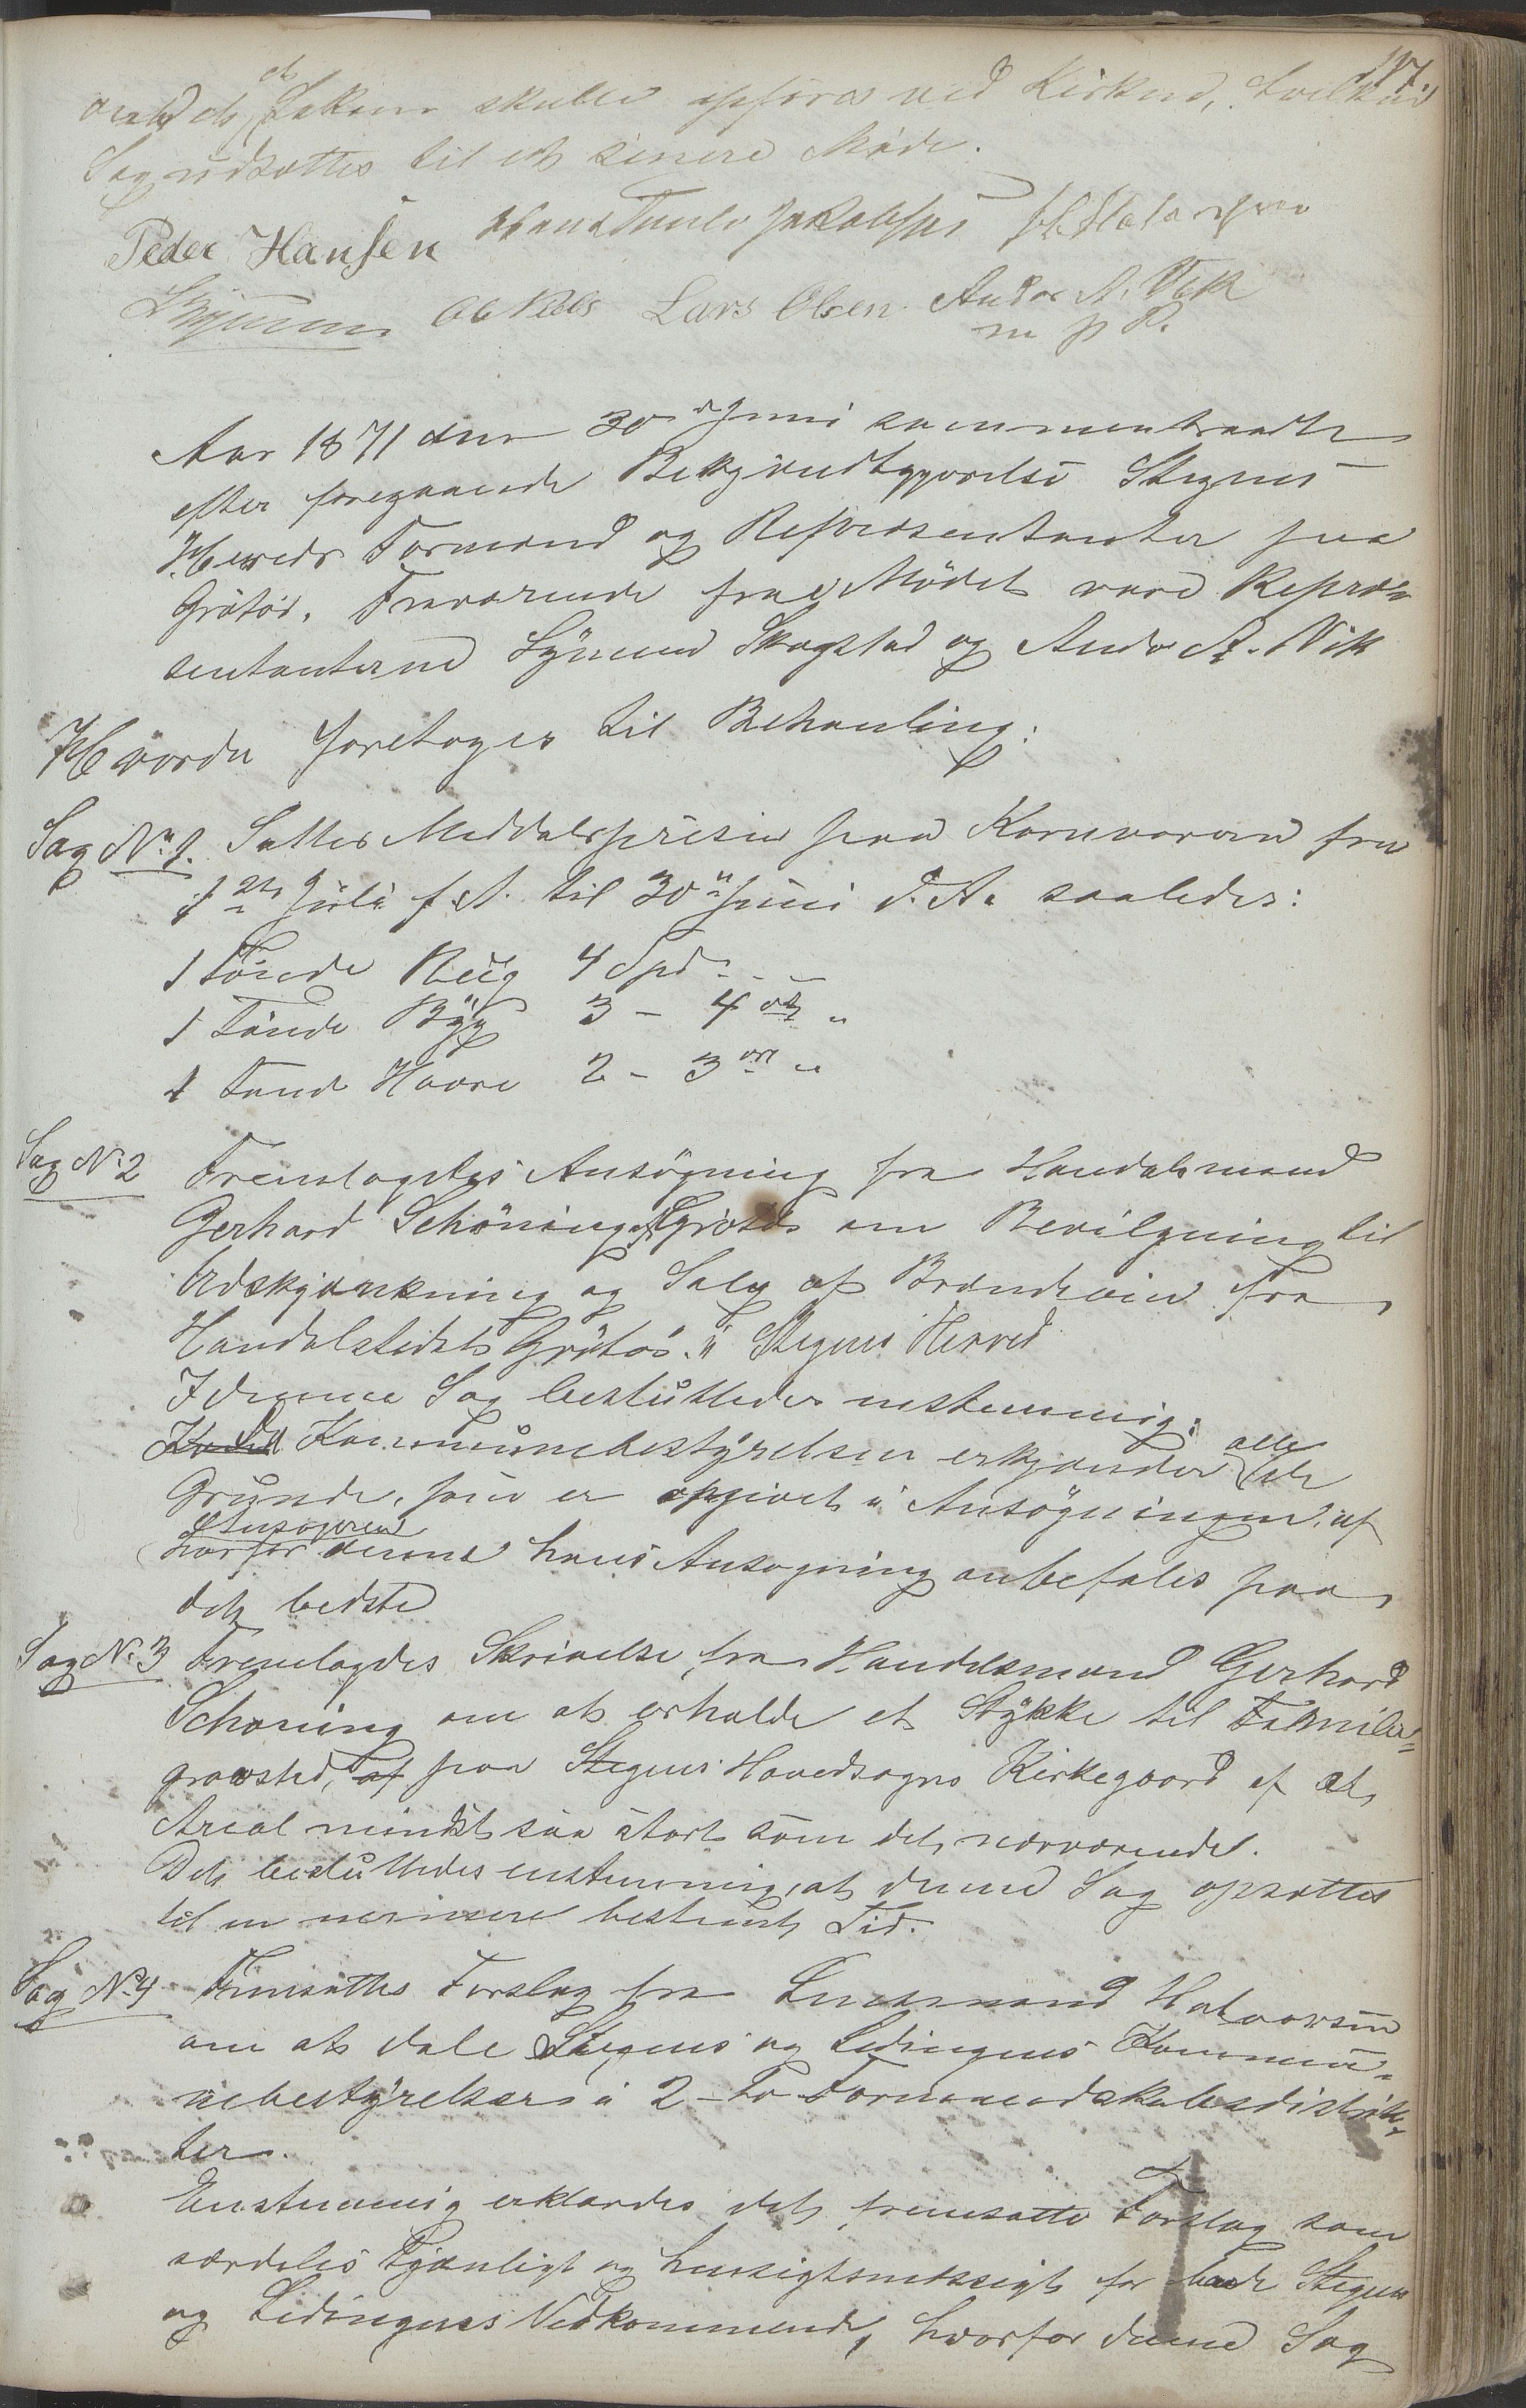 117.
at et Lokum skulde opføres ved Kirken, hvilken
Sag udsattes til et senere Møde.
Peder Hansen Hans Tunlo Jakobsen H. Halvorsen
Ole Nils Lars Olsen Andor A. Vik
m p P.
Aar 1871 den 30d Juni sammentraadte
efter foregaaende Bekjendtgjørelse Stegens
Herreds Formænd og Repræsentanter paa
Grøtø. Fraværende fra Mødet vare Repræ-
sentanterne Symund Skagstad og Andor A. Vik
Hvorda foretoges til Behanling:
Sag No 1. Sattes Middelsprisen paa Kornvarer fra
1ste Juli f. A. til 30te Juni d. A. saaledes:
1 Tønde Rug 4 Spd. - -
1 Tønde Byg 3 - 4 ort "
1 Tønde Havre 2 - 3 ort "
Sag No 2 Fremlagdes Ansøgning fra Handelsmand
Gerhard Schøning Grøtø om Bevilgning til
Udskjænkning og Salg af Brændeviin fra
Handelstedet Grøtø i Stegens Herred
I denne Sag besluttedes enstemmig:
Kommunebestyrelsen erkjender alle de
Grunde, som er opgivet i Ansøgningen, af
Ansøgeren
hvorfor denne hans Ansøgning anbefales paa
det bedste
Sag No 3 Fremlagdes Skrivelse fra Handelsmand Gerhard
Schøning om at erholde et Stykke til Familie=
gravsted, af paa Stegens Hovedsogns Kirkegaard af et
Areal mindst saa stort som det nærværende.
Det besluttedes enstemmig, at denne Sag opsattes
til en nærmere bestemt Tid.
Sag No 4 Fremsattes Forslag fra Lensmand Halvorsen
om at dele Stegens og Lødingens Kommu-
nebestyrelser i 2 - to Formandskabsdistrik-
ter.
Enstemmig erklærdes det fremsatte Forslag som
særdeles tjenligt og hensigtsmessigt for baade Stegens
og Lødingens Vedkommende, hvorfor denne Sag